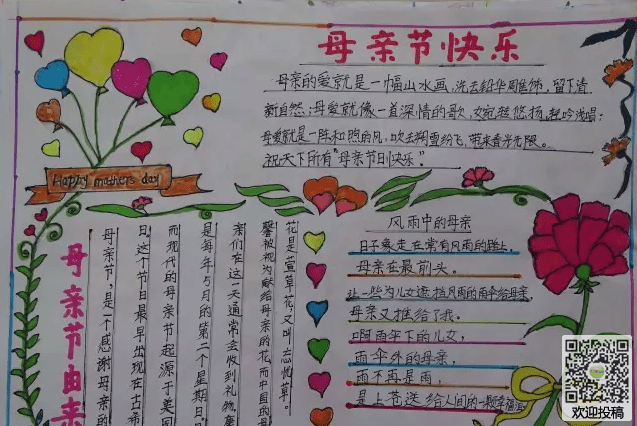 母亲节快乐
母亲的爱就是一幅山水画，洗去铅华雕饰，留下清
新自然；母爱就像一首深情的歌，婉转悠扬，轻吟浅唱；
母爱就是一阵和煦的风，吹去朔雪纷飞，带来春光无限。
祝天下所有“母亲节日快乐”。
Happy mothers day
母亲节由来
母亲节，是一个感谢母亲的
日，这个节日最早出现在古希
而现代的母亲节起源于美国
是每年5月的第二个星期日
亲们在这一天通常会收到礼物，康
馨被视为献给母亲的花，而中国的母
花是萱草花，又叫忘忧草。
风雨中的母亲
日子象走在常有风雨的路上，
母亲在最前头。
让一些为儿女遮挡风雨的雨伞给母亲，
母亲又推给了我。
啊雨伞下的儿女，
雨伞外的母亲，
雨不再是雨，
是上苍送给人间的一颗幸福
欢迎投稿